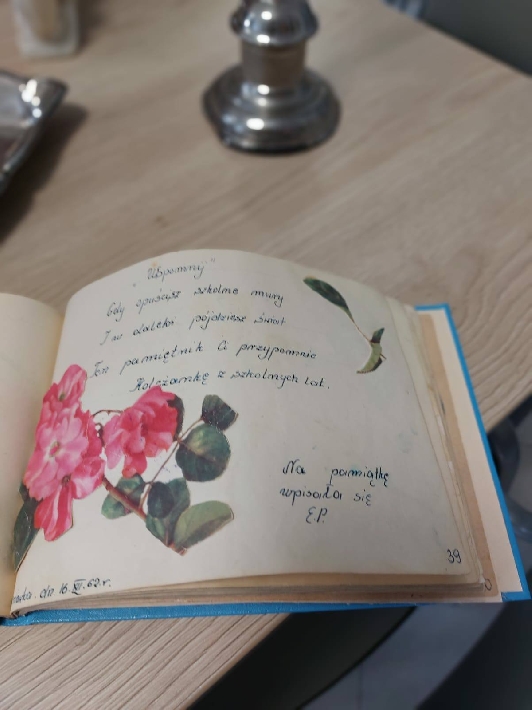 „Wspomnij"
Gdy opuścisz szkolne mury
I w daleki pójdziesz świat
Ten pamiętnik Ci przypomnie
Koleżankę z szkolnych lat.
Na pamiątkę
wpisała się
E.P.
39
dn 16 XI. 62.r.